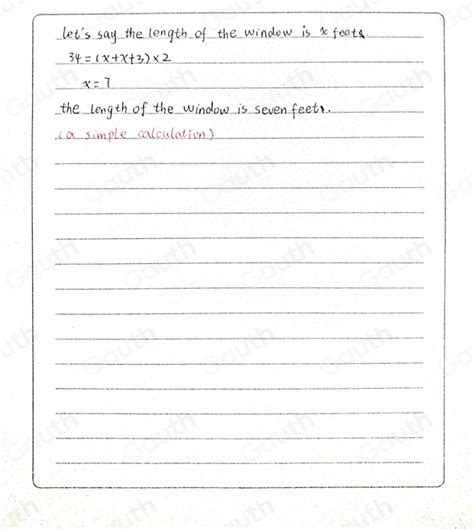 let's say the length of the window is x feets.
34=(x+x+3)×2
x=7
the length of the window is seven feets.
(a simple calculation)